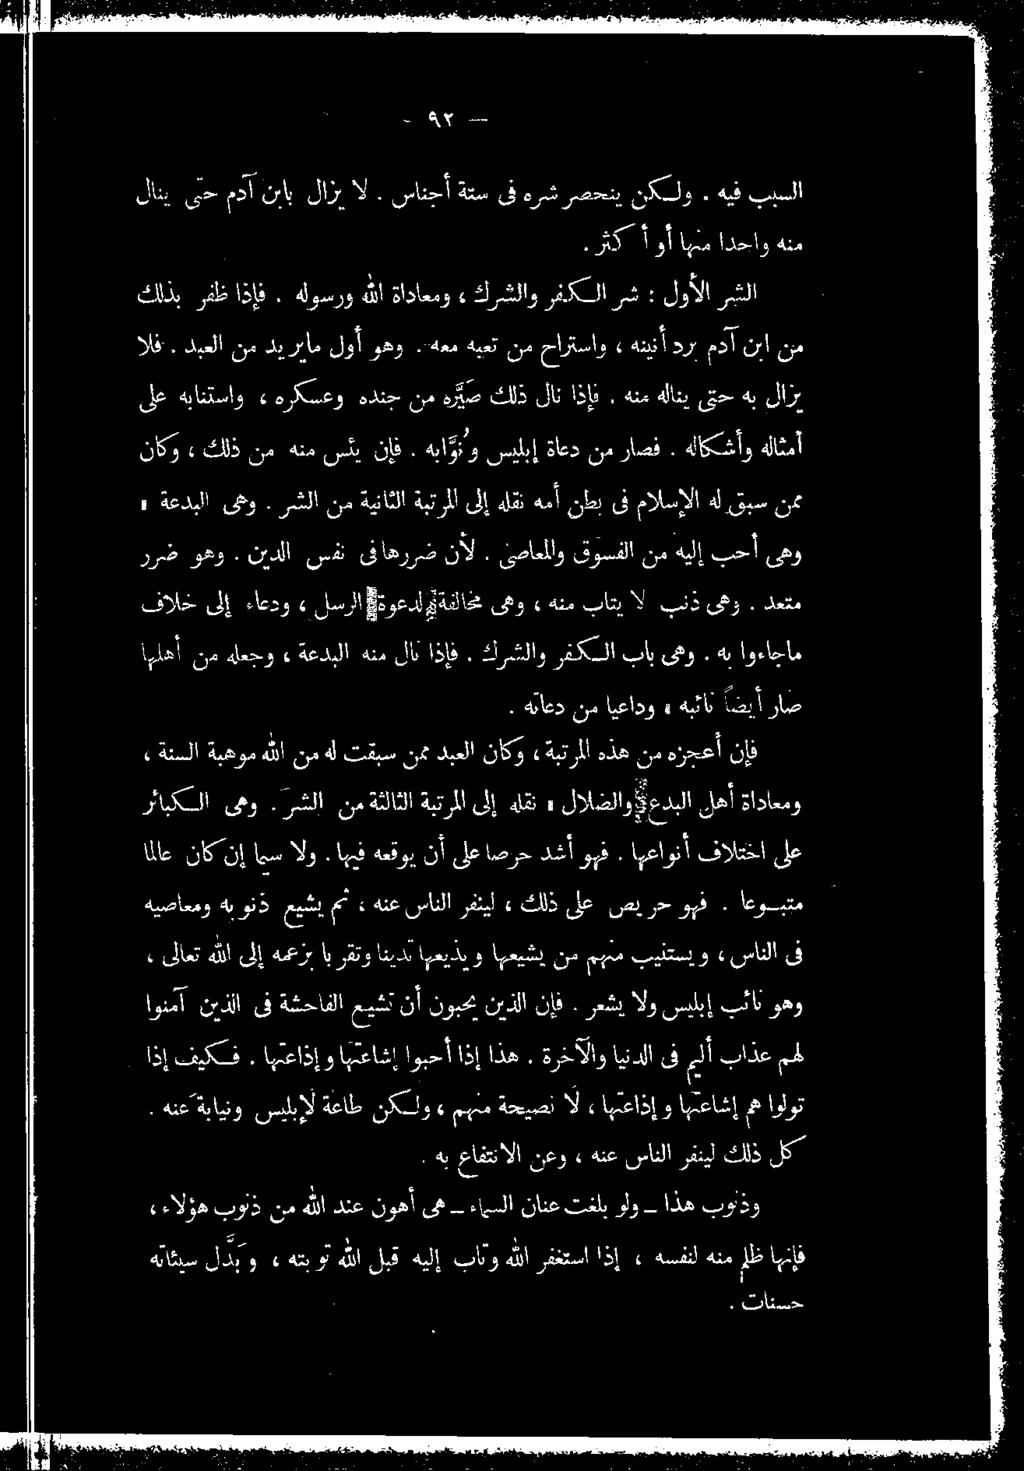 — ٩٢ -
السبب فيه . ولـكن ينحصر شره فى ستة أجناس . لا يزال بابن آدم حتى ينال
منه واحدا منها أو أكثر .
الشر الأول : شر الـكفر والشرك ، ومعاداة الله ورسوله . فإذا ظفر بذلك
من ابن آدم برد أنينه ، واستراح من تعبه معه . وهو أول مايريد من العبد . فلا
يزال به حتى يناله منه . فإذا نال ذلك صَيَّره من جنده وعسكره ، واستنابه على
أمثاله وأشكاله . فصار من دعاة إبليس ونُوَّابه . فإن يئس منه من ذلك ، وكان
ممن سبق له الإسلام فى بطن أمه نقله إلى المرتبة الثانية من الشر . وهى البدعة ،
وهى أحب إليه من الفسوق والمعاصى . لأن ضررها فى نفس الدين . وهو ضرر
متعد . وهى ذنب لا يتاب منه ، وهى مخالفة لدعوة الرسل ، ودعاء إلى خلاف
ماجاءوا به . وهى باب الـكفر والشرك . فإذا نال منه البدعة ، وجعله من أهلها
صار أيضاً نائبه ، وداعيا من دعاته .
فإن أعجزه من هذه المرتبة ، وكان العبد ممن سبقت له من الله موهبة السنة ،
ومعاداة أهل البدع والضلال ، نقله إلى المرتبة الثالثة من الشر . وهى الـكبائر
على اختلاف أنواعها . فهو أشد حرصا على أن يوقعه فيها . ولا سيما إن كان عالما
متبـوعا . فهو حريص على ذلك ، لينفر الناس عنه ، ثم يشيع ذنوبه ومعاصيه
فى الناس ، ويستنيب منهم من يشيعها ويذيعها تدينا وتقربا بزعمه إلى الله تعالى ،
وهو نائب إبليس ولا يشعر . فإن الذين يحبون أن تشيع الفاحشة فى الذين آمنوا
لهم عذاب أليم فى الدنيا والآخرة . هذا إذا أحبوا إشاعتها وإذاعتها . فـكيف إذا
تولوا هم إشاعتها وإذاعتها ، لا نصيحة منهم ، ولـكن طاعة لإبليس ونيابة عنه .
كل ذلك لينفر الناس عنه ، وعن الانتفاع به .
وذنوب هذا ــ ولو بلغت عنان السماء ــ هى أهون عند الله من ذنوب هؤلاء ،
فإنها ظلم منه لنفسه ، إذا استغفر الله وتاب إليه قبل الله توبته ، وبَدَّل سيئاته
حسنات .